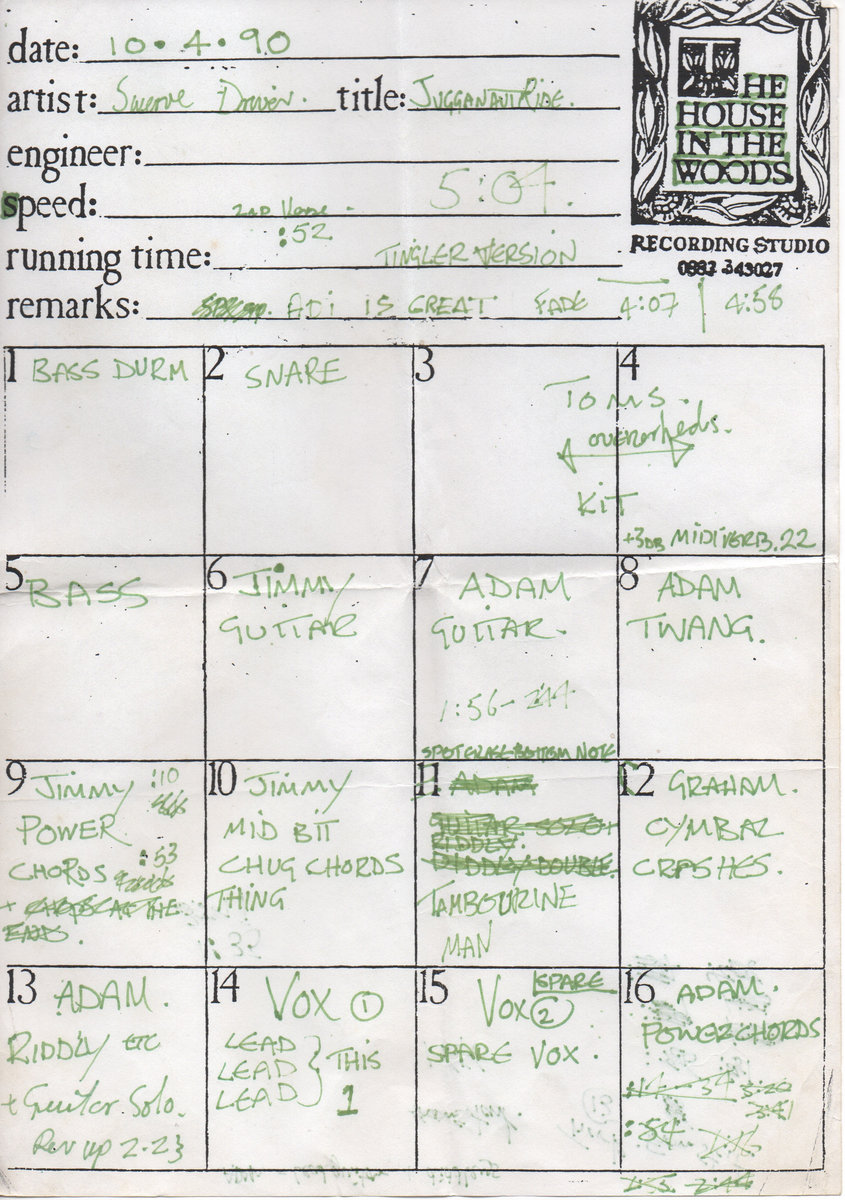 date: 10.4.90
THE
HOUSE
IN THE
WOODS
RECORDING STUDIO
0882 343027
artist: Swerve Driver. title: JUGGANAUT RIDE.
engineer:
speed: 5:04.
2nd Verse -
:52
running time: TINGLER VERSION
remarks: ADI IS GREAT FADE 4:07 | 4:58
1 BASS DURM
2 SNARE
3
4
TOMS.
overheads.
KIT
+3DB MIDIVERB.22
5 BASS
6 JIMMY
GUITAR
7 ADAM
GUITAR.
1:56 - 2:44
SPOT ERASE BOTTOM NOTE
8 ADAM
TWANG.
9 JIMMY :10
POWER
CHORDS :53
+ CHOPS AT THE
END.
10 JIMMY
MID BIT
CHUG CHORDS
THING
11 ADAM
GUITAR SOLO +
RIDDLY.
RIDDLY DOUBLE.
TAMBOURINE
MAN
12 GRAHAM.
CYMBAL
CRASHES.
13 ADAM.
RIDDLY ETC
+ Guitar Solo.
Rev up 2.23
14 VOX 1
LEAD
LEAD } THIS
LEAD 1
15 SPARE
VOX 2
SPARE VOX.
16 ADAM.
POWERCHORDS
3:20
3:41
:54
2:44